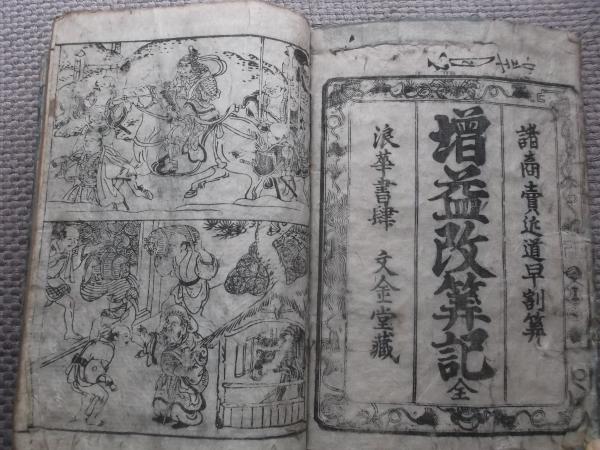 諸商賣近道早割算
增益改算記全
浪華書肆 文金堂藏